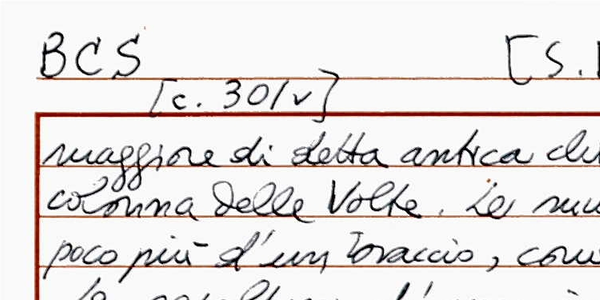 BCS [S.
[c. 30/v]
maggiore di detta antica
colonna delle Volte. Le
poco più d'un braccio,